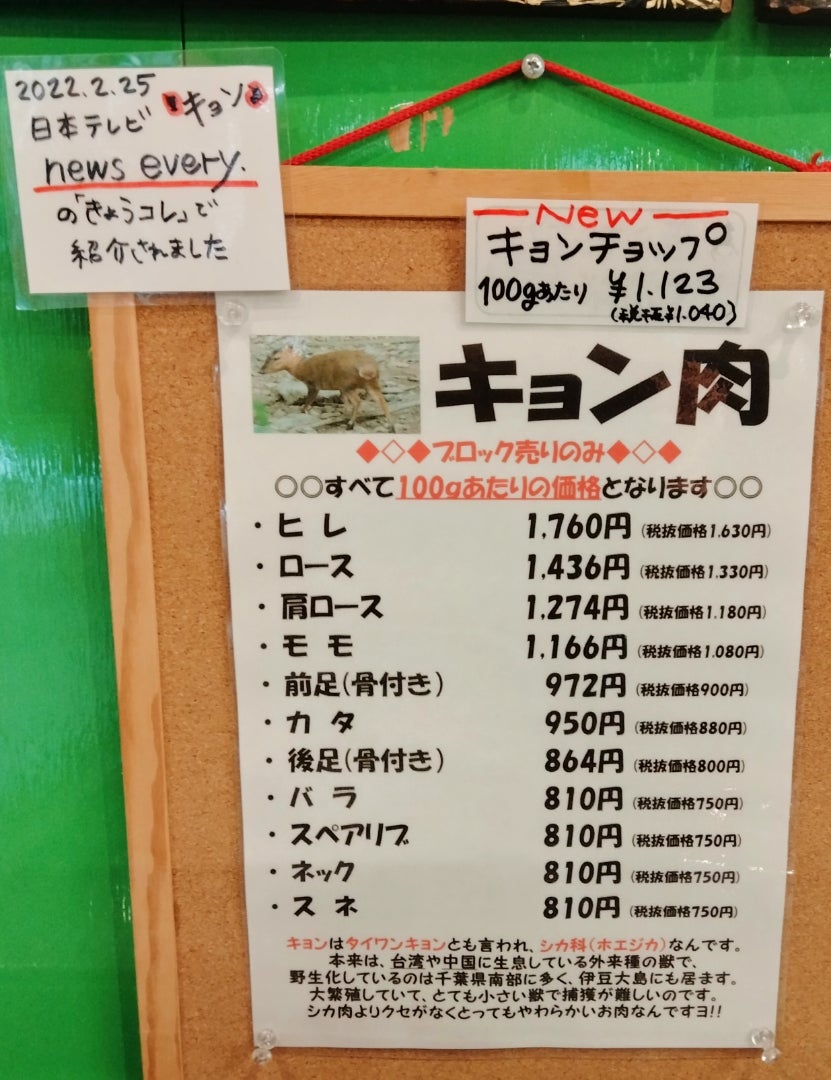 2022.2.25
日本テレビ キョン
news every.
の「きょうコレ」で
紹介されました
New
キョンチョップ
100gあたり ¥1.123
(税抜¥1.040)
キョン肉
◆◇◆ブロック売りのみ◆◇◆
○○すべて100gあたりの価格となります○○
・ヒレ 1,760円(税抜価格1,630円)
・ロース 1,436円(税抜価格1,330円)
・肩ロース 1,274円(税抜価格1,180円)
・モモ 1,166円(税抜価格1,080円)
・前足(骨付き) 972円(税抜価格900円)
・カタ 950円(税抜価格880円)
・後足(骨付き) 864円(税抜価格800円)
・バラ 810円(税抜価格750円)
・スペアリブ 810円(税抜価格750円)
・ネック 810円(税抜価格750円)
・スネ 810円(税抜価格750円)
キョンはタイワンキョンとも言われ、シカ科(ホエジカ)なんです。
本来は、台湾や中国に生息している外来種の獣で、
野生化しているのは千葉県南部に多く、伊豆大島にも居ます。
大繁殖していて、とても小さい獣で捕獲が難しいのです。
シカ肉よりクセがなくとってもやわらかいお肉なんですヨ!!